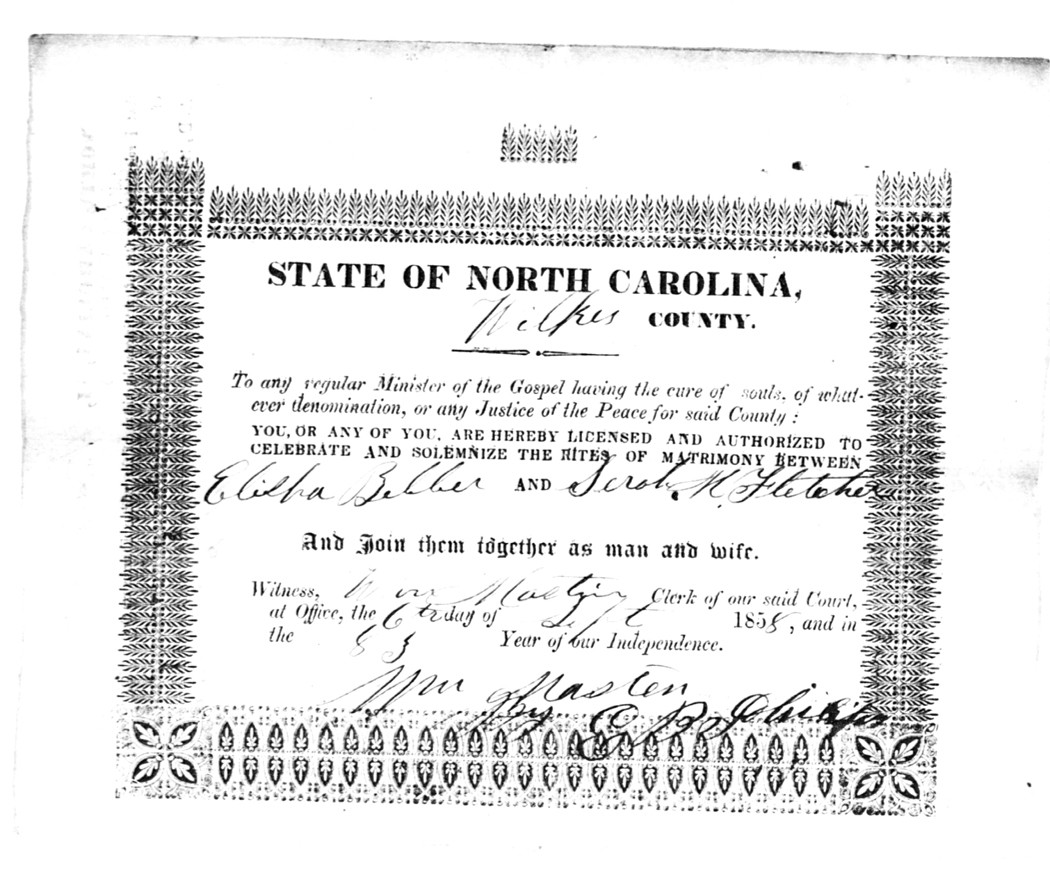 STATE OF NORTH CAROLINA,
Wilkes COUNTY.
To any regular Minister of the Gospel having the cure of souls, of what-
ever denomination, or any Justice of the Peace for said County:
YOU, OR ANY OF YOU, ARE HEREBY LICENSED AND AUTHORIZED TO
CELEBRATE AND SOLEMNIZE THE RITES OF MATRIMONY BETWEEN
Elisha Bebber AND Serah M Fletcher
And Join them together as man and wife.
Witness, Wm Masten Clerk of our said Court,
at Office, the 6th day of Sept 1858, and in
the 83 Year of our Independence.
Wm Masten
By E B